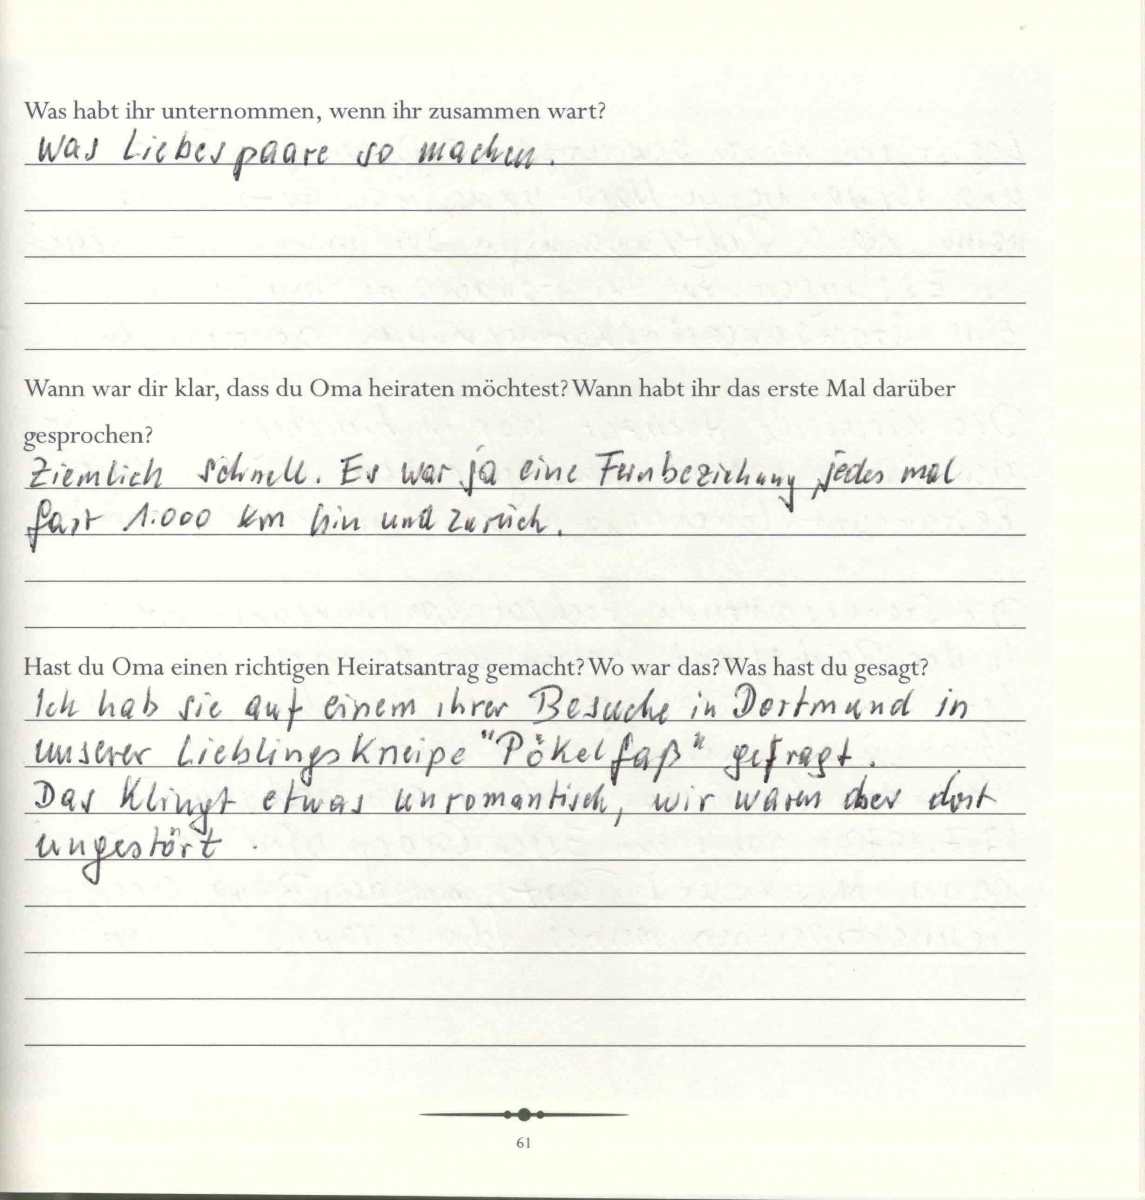 Was habt ihr unternommen, wenn ihr zusammen wart?
Was Liebespaare so machen.
Wann war dir klar, dass du Oma heiraten möchtest? Wann habt ihr das erste Mal darüber
gesprochen?
Ziemlich schnell. Es war ja eine Fernbeziehung, jedes mal
fast 1.000 km hin und zurück.
Hast du Oma einen richtigen Heiratsantrag gemacht? Wo war das? Was hast du gesagt?
Ich hab sie auf einem ihrer Besuche in Dortmund in
unserer Lieblingskneipe "Pökelfaß" gefragt.
Das klingt etwas unromantisch, wir waren aber dort
ungestört.
61